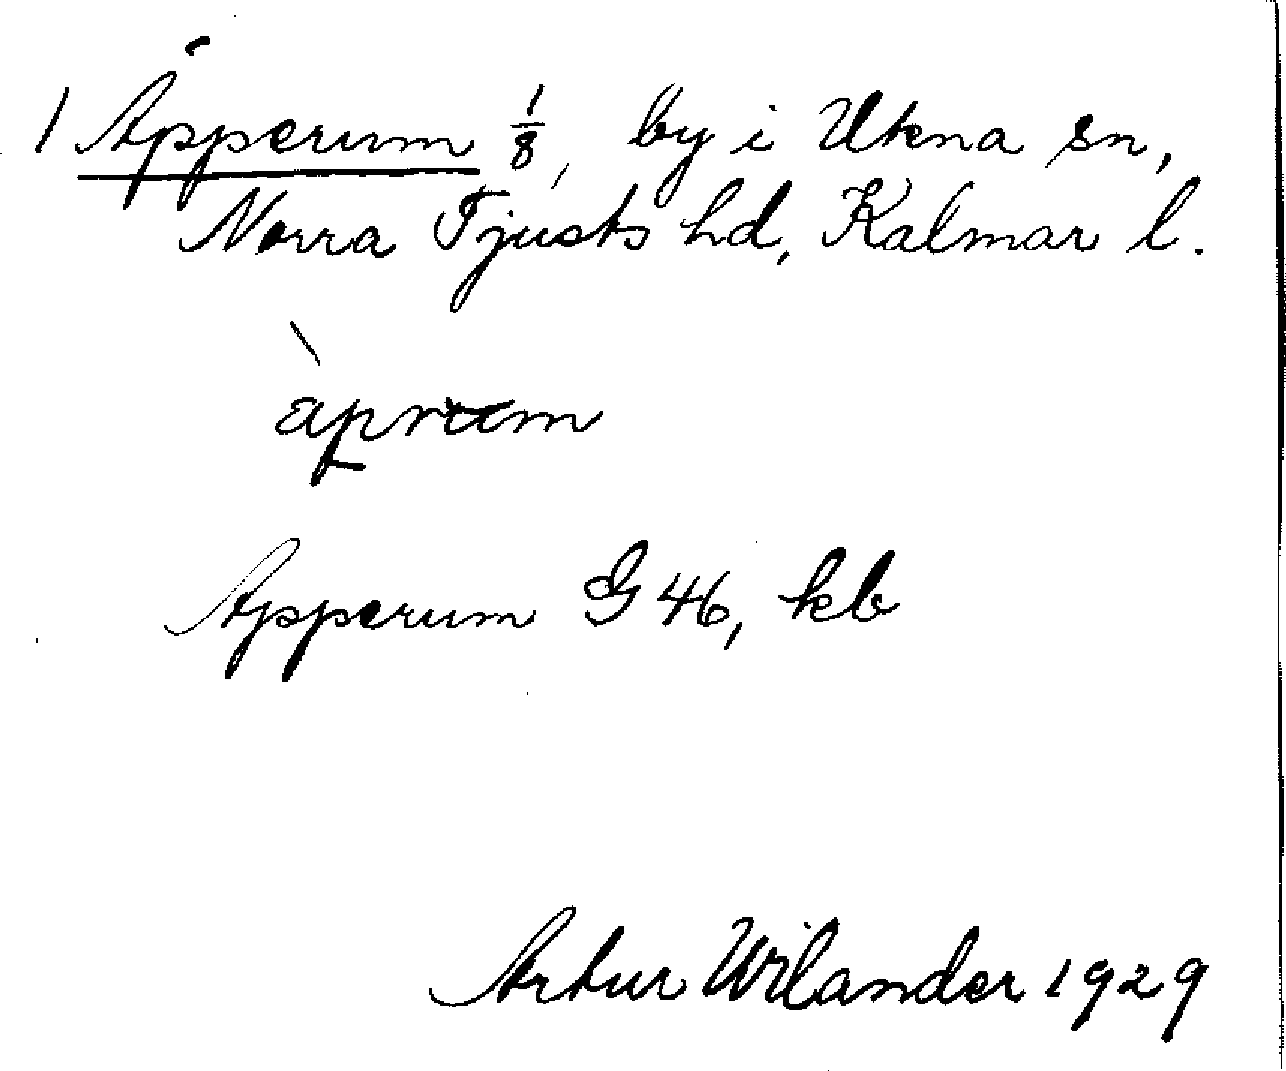 1 Apperum 1/8, by i Ukna sn,
Norra Tjusts hd, Kalmar l.
àprum
Apperum G 46, kb
Artur Wilander 1929